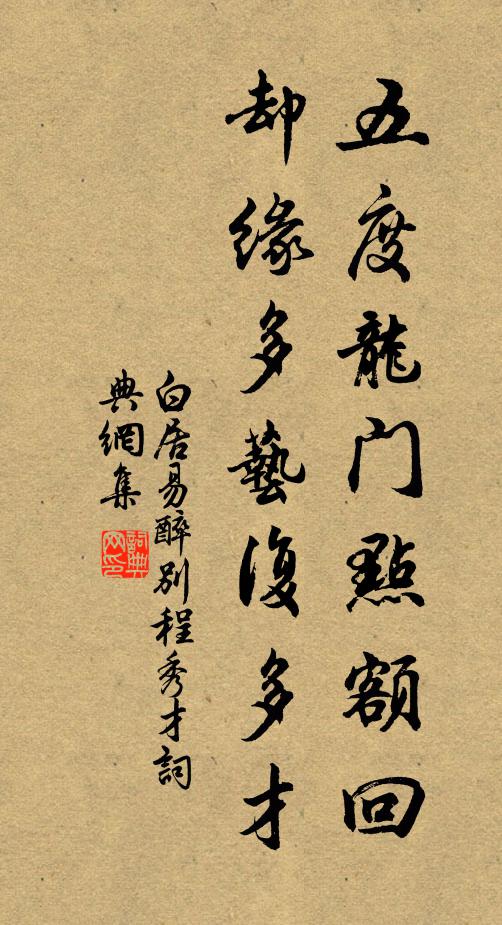 五度龍門點額回
却緣多藝復多才
白居易醉別程秀才詞
典網集
詞典网印